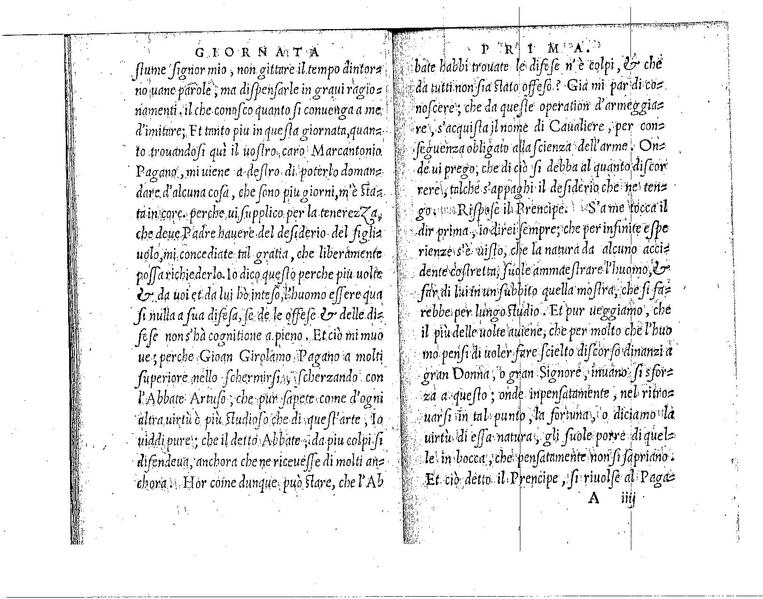 GIORNATA
stume signor mio, non gittare il tempo dintor=
no uane parole; ma dispensarle in graui ragio=
namenti. il che conosco quanto si conuenga a me
d'imitare; Et tanto piu in questa giornata, quan=
to trouandosi quì il uostro caro Marcantonio
Pagano, mi uiene a destro di poterlo doman=
dare d'alcuna cosa, che sono piu giorni, m'è sta=
ta in core. perche ui supplico per la tenerezza,
che deue Padre hauere del desiderio del figli=
uolo, mi concediate tal gratia, che liberamente
possa richiederlo. Io dico questo perche più uolte
& da uoi et da lui hò inteso, l'huomo essere qua
si nulla a sua difesa, se de le offese & delle di=
fese non s'hà cognitione a pieno. Et ciò mi muo
ue; perche Gioan Girolamo Pagano a molti
superiore nello schermirsi, scherzando con
l'Abbate Artuso; che pur sapete come d'ogni
altra uirtù è più studioso che di quest'arte, Io
uiddi pure; che il detto Abbate, da piu colpi si
difendeua, anchora che ne riceuesse di molti an=
chora. Hor come dunque può stare, che l'Ab
PRIMA.
bate habbi trouate le difese n'è colpi, & che
da tutti non sia stato offeso? Già mi par di co=
noscere; che da queste operation d'armeggia=
re, s'acquista il nome di Caualiere, per con=
seguenza obligato alla scienza dell'arme. On=
de ui prego; che di ciò si debba al quanto discor
rere, talche s'appaghi il desiderio che ne ten=
go. Rispose il Prencipe. S'a me tocca il
dir prima, io direi sempre; che per infinite espe
rienze s'è uisto, che la natura da alcuno acci=
dente costretta, suole ammaestrare l'huomo, &
far di lui in un subbito quella mostra, che si fa=
rebbe per lungo studio. Et pur ueggiamo, che
il più delle uolte auiene, che per molto che l'huo
mo pensi di uoler fare scielto discorso dinanzi a
gran Donna, o gran Signore, inuano si sfor=
za a questo; onde inpensatamente, nel ritro=
uarsi in tal punto, la fortuna, o diciamo la
uirtù di essa natura, gli suole porre di quel=
le in bocca, che pensatamente non si sapriano.
Et ciò detto il Prencipe, si riuolse al Paga=
A iiij